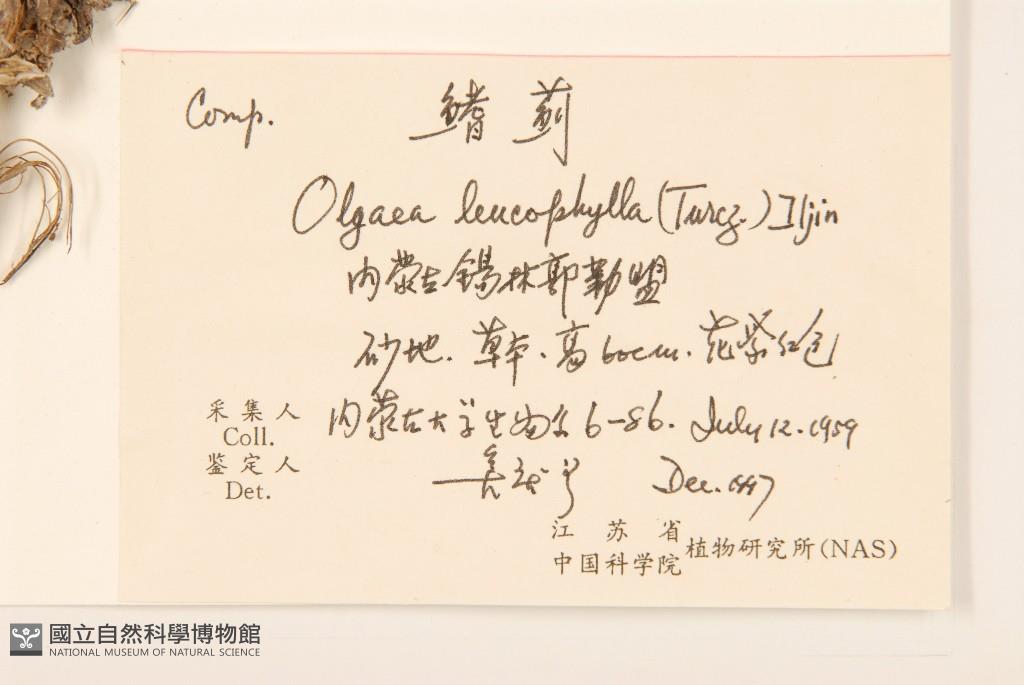 Comp. 鳍蓟
Olgaea leucophylla (Turcz.) Iljin
内蒙古锡林郭勒盟
砂地. 草本. 高 60cm. 花紫红色
采集人 内蒙古大学生物系 6-86. July 12. 1959
Coll.
鉴定人 Dec. 1997
Det.
江苏省
中国科学院 植物研究所(NAS)
國立自然科學博物館
NATIONAL MUSEUM OF NATURAL SCIENCE